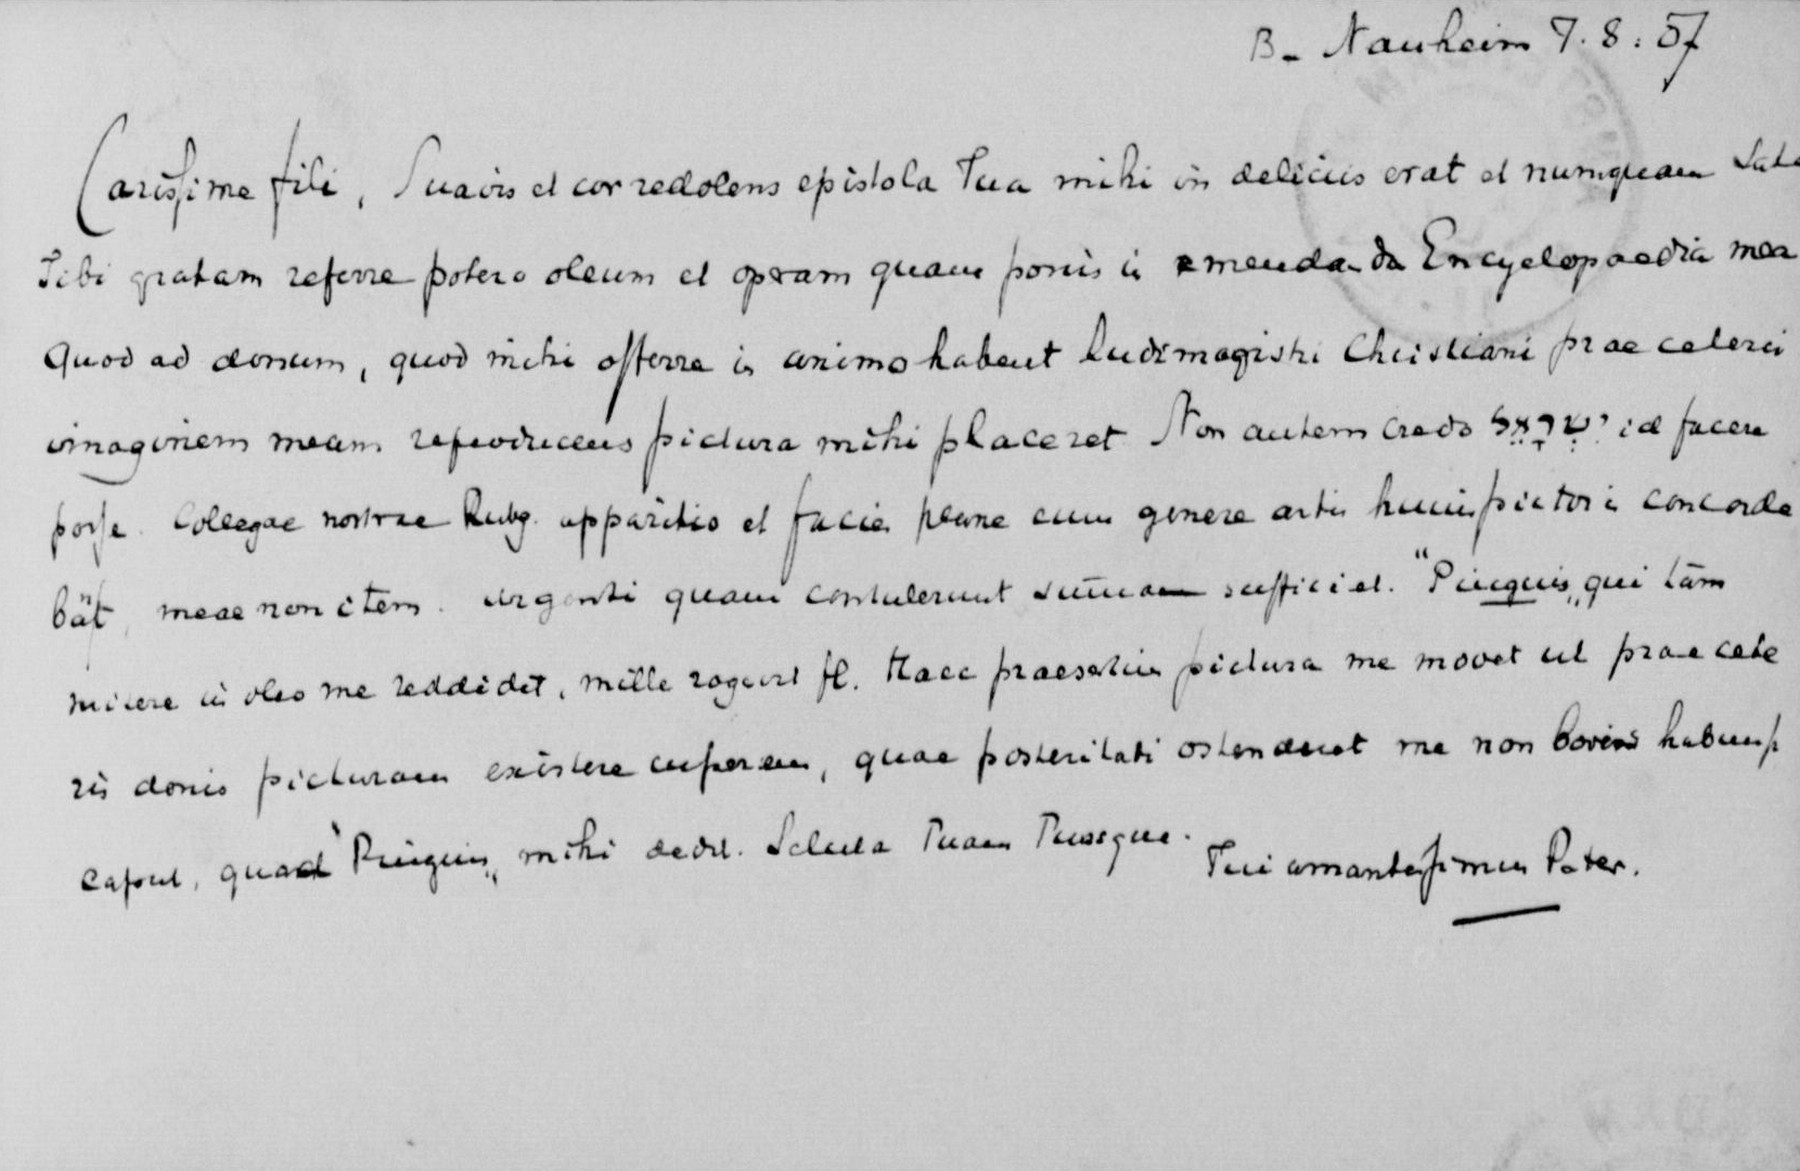 B. Nauheim 7.8.57
Carissime fili, Suavis et cor redolens epistola Tua mihi in deliciis erat et numquam satis
Tibi gratam referre potero oleum et operam quam ponis in emendanda Encyclopaedia mea
Quod ad donum, quod mihi offerre in animo habent ludimagistri Christiani prae ceteris
imaginem meam reproducens pictura mihi placeret Non autem credo יִשְׂרָאֵל id facere
posse. Collegae nostrae Rubg. apparitio et facies plane cum genere artis huius pictoris concorda
bat, meae non item. Argenti quam contulerunt summam sufficiet. "Pinguis„ qui tam
misere in oleo me reddidit, mille rogavit fl. Haec praesertim pictura me movet ut prae cete
ris donis picturam existere cuperem, quae posteritati ostenderet me non bovis habuisse
caput, quod "Pinguis„ mihi dedit. Saluta Tuam Tuosque.
Tui amantissimus Pater.